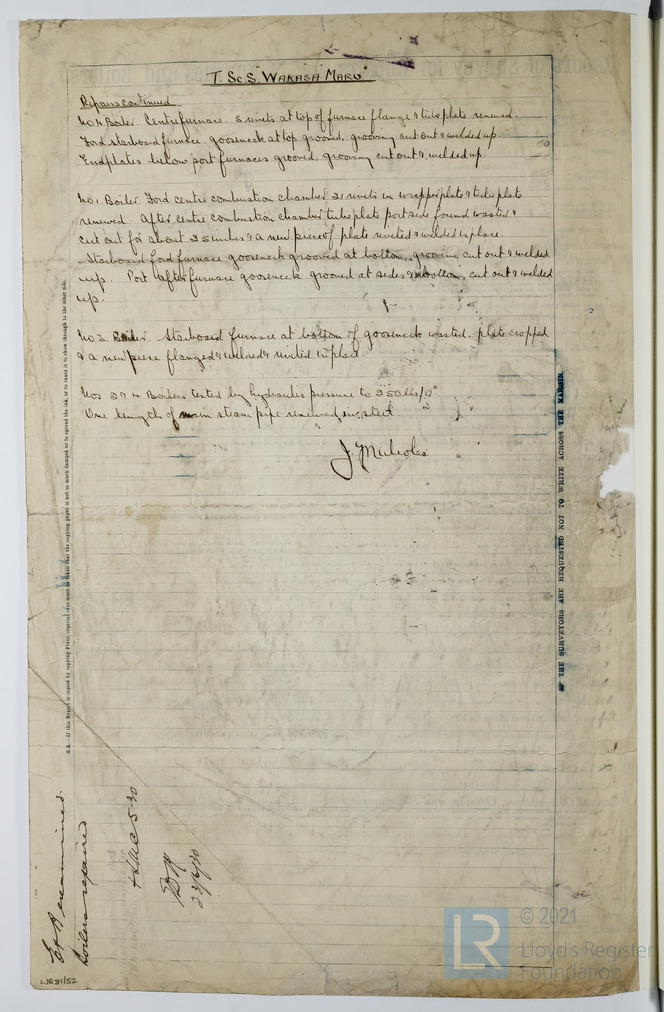 T. Sc. S. "WAKASA MARU"
Repairs continued
No 4 Boiler. Centre furnace. 5 rivets at top of furnace flange & tube plate renewed.
Ford starboard furnace. gooseneck at top grooved, grooving cut out & welded up.
Endplates below port furnaces grooved, grooving cut out & welded up.
No 1 Boiler. Ford centre combustion chamber 21 rivets in wrapper plate & tube plate
renewed. After centre combustion chamber tube plate port side found wasted &
cut out for about 25 inches & a new piece of plate riveted & welded in place.
Starboard ford furnace gooseneck grooved at bottom, grooving cut out & welded
up. Port after furnace gooseneck grooved at sides & bottom, cut out & welded
up.
No 3 Boiler. Starboard furnace at bottom of gooseneck wasted, plate cropped
& a new piece flanged & welded & riveted in place.
Nos 2 & 4 Boilers tested by hydraulic pressure to 250 lbs/□"
One length of main steam pipe renewed in steel
J. Nicholas
N.B.—If this Report is copied by copying Press, especial care must be taken that the copying paper is not so much damped as to spread the ink, or to cause it to show through to the other side.
THE SURVEYORS ARE REQUESTED NOT TO WRITE ACROSS THE MARGIN.
examined
Boilers repaired
+LMC 5.30
23/6/30
WR81/52
© 2021
LR
Lloyd's Register
Foundation